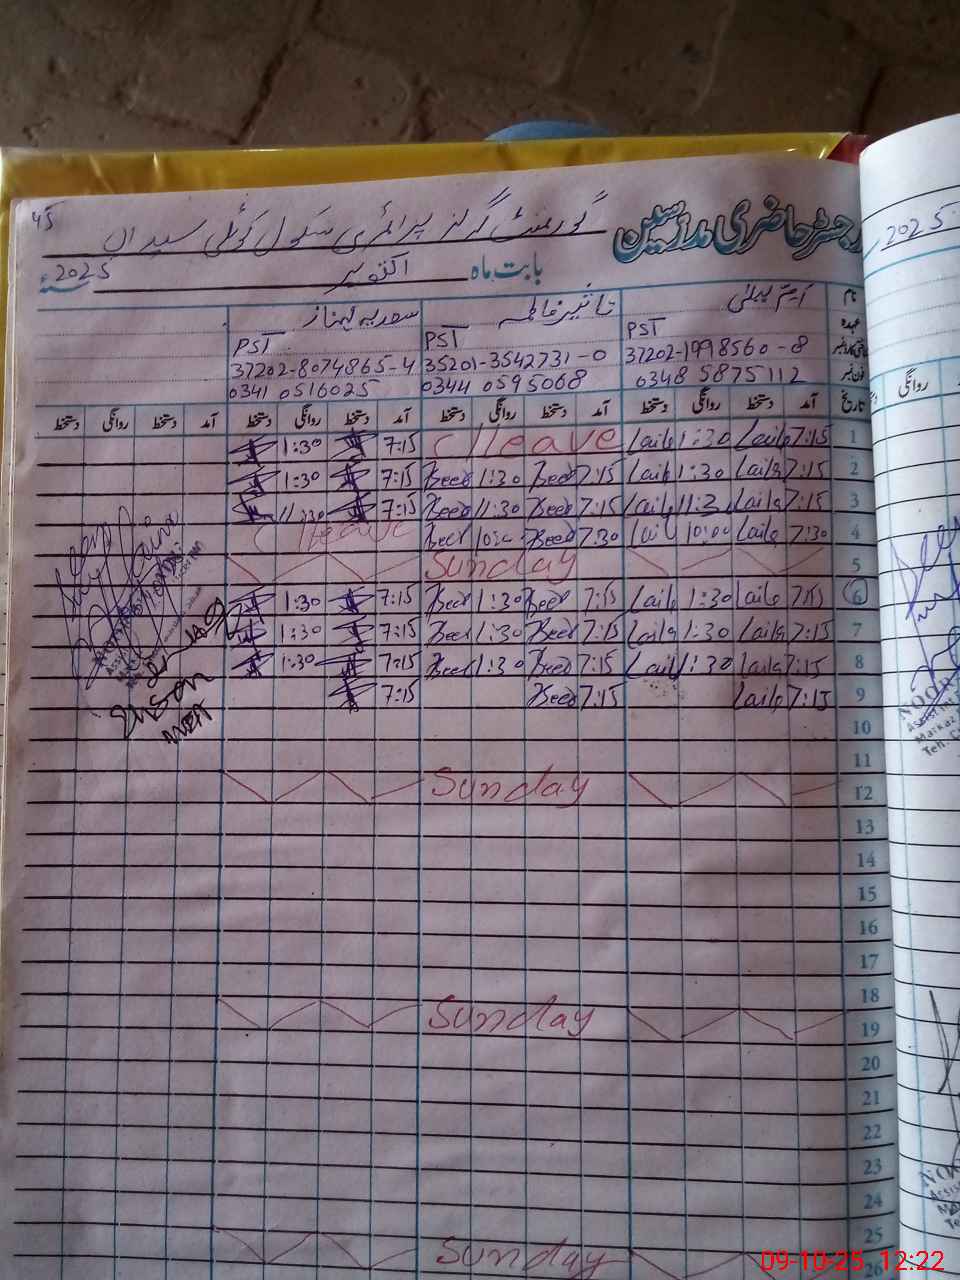 45
رجسٹر حاضری مدرسین گورنمنٹ گرلز پرائمری سکول کوٹلی سیداں
بابت ماہ اکتوبر 2025
2025
نام تاثیر فاطمہ سعدیہ شہناز
عہدہ PST PST PST
37202-1998560-8 35201-3542731-0 37202-8074865-4
فون نمبر 0348 5875112 0344 0595068 0341 0516025
تاریخ آمد دستخط روانگی دستخط آمد دستخط روانگی دستخط آمد دستخط روانگی دستخط آمد دستخط روانگی دستخط
روانگی
1 7:15 Laila 1:30 Laila C leave 7:15 1:30
2 7:15 Laila 1:30 Laila 7:15 1:30 7:15 1:30
3 7:15 Laila 11:30 Laila 7:15 11:30 7:15 11:30
4 7:30 Laila 10:00 Laila 7:30 10:00 C leave
5 Sunday
6 7:15 Laila 1:30 Laila 7:15 1:30 7:15 1:30
7 7:15 Laila 1:30 Laila 7:15 1:30 7:15 1:30
8 7:15 Laila 1:30 Laila 7:15 1:30 7:15 1:30
9 7:15 Laila 7:15 7:15
10
11
12 Sunday
13
14
15
16
17
18
19 Sunday
20
21
22
23
24
25
26 Sunday
NOOR
Markaz
09-10-25 12:22